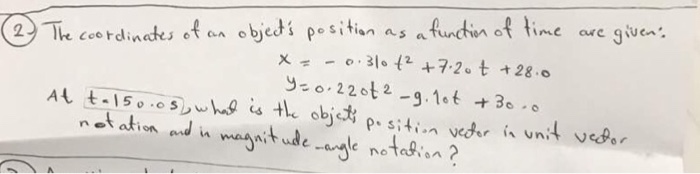 2) The coordinates of an object's position as a function of time are given:
x = - 0.310 t² + 7.20 t + 28.0
y = 0.220t² - 9.10t + 30.0
At t = 150.0 s, what is the object's position vector in unit vector
notation and in magnitude-angle notation?